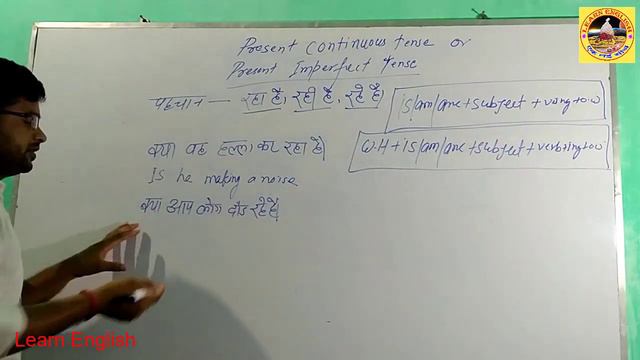 Present Continuous tense or
Present Imperfect Tense
पहचान — रहा है, रही है, रहे हैं।
is/am/are + subject + v+ing + o.w
W.H + is/am/are + subject + verb+ing + o.w
क्या वह हल्ला कर रहा है।
Is he making a noise
क्या आप लोग दौड़ रहे हैं।
LEARN ENGLISH
Learn English